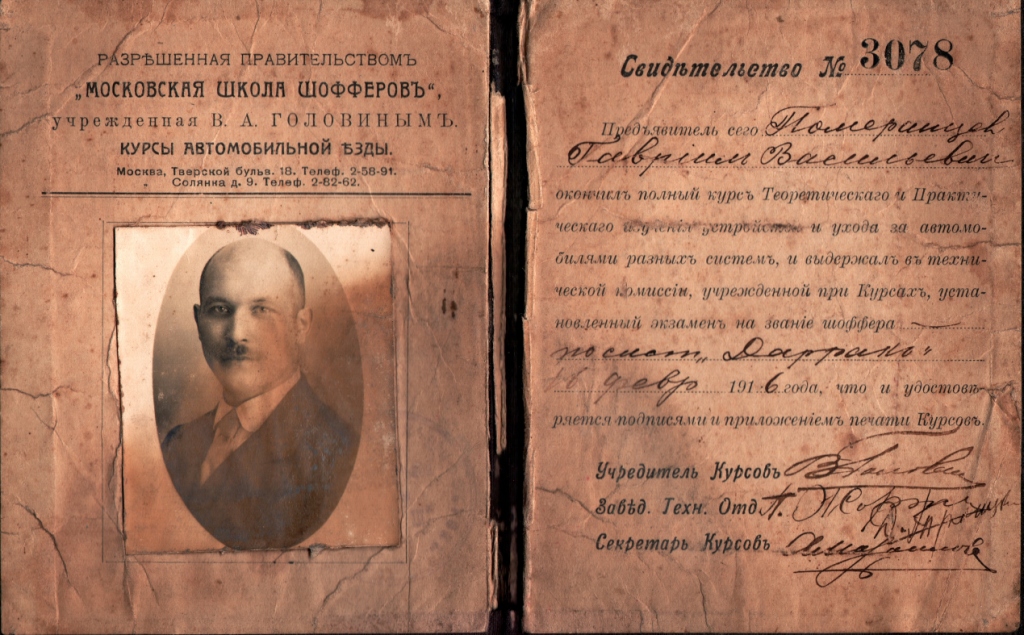 РАЗРѢШЕННАЯ ПРАВИТЕЛЬСТВОМЪ
„МОСКОВСКАЯ ШКОЛА ШОФФЕРОВЪ“,
учрежденная В. А. ГОЛОВИНЫМЪ.
КУРСЫ АВТОМОБИЛЬНОЙ ѢЗДЫ.
Москва, Тверской бульв. 18. Телеф. 2-58-91.
Солянка д. 9. Телеф. 2-82-62.
Свидѣтельство № 3078
Предъявитель сего Померанцев
Гавріил Васильевич
окончилъ полный курсъ Теоретическаго и Практи-
ческаго изученія устройства и ухода за автомо-
билями разныхъ системъ, и выдержалъ въ техни-
ческой комиссіи, учрежденной при Курсахъ, уста-
новленный экзаменъ на званіе шоффера
по сист. „Даррак“
16 февр 1916 года, что и удостовѣ-
ряется подписями и приложеніемъ печати Курсовъ.
Учредитель Курсовъ В Головин
Завѣд. Техн. Отд.
Секретарь Курсовъ